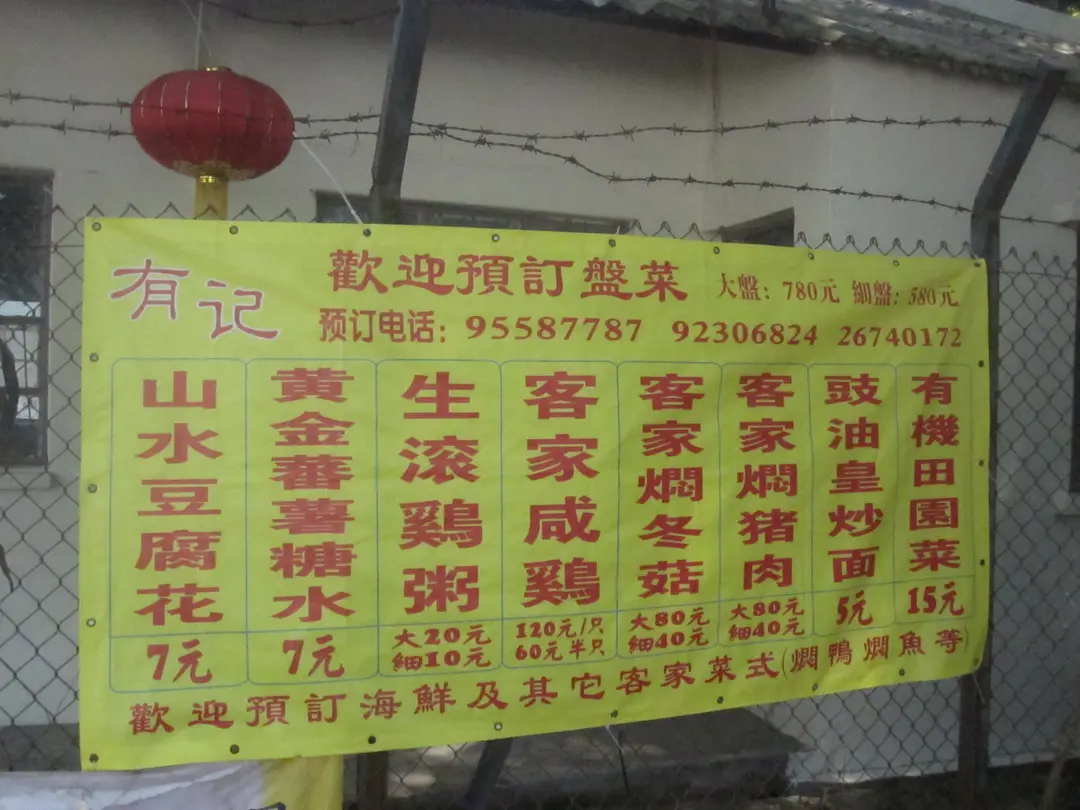 有记
歡迎預訂盤菜 大盤: 780元 細盤: 580元
预订电话: 95587787 92306824 26740172
山水豆腐花
7元
黄金蕃薯糖水
7元
生滚鷄粥
大20元
細10元
客家咸鷄
120元/只
60元半只
客家燜冬菇
大80元
細40元
客家燜猪肉
大80元
細40元
豉油皇炒面
5元
有機田園菜
15元
歡迎預訂海鮮及其它客家菜式(燜鴨燜魚等)